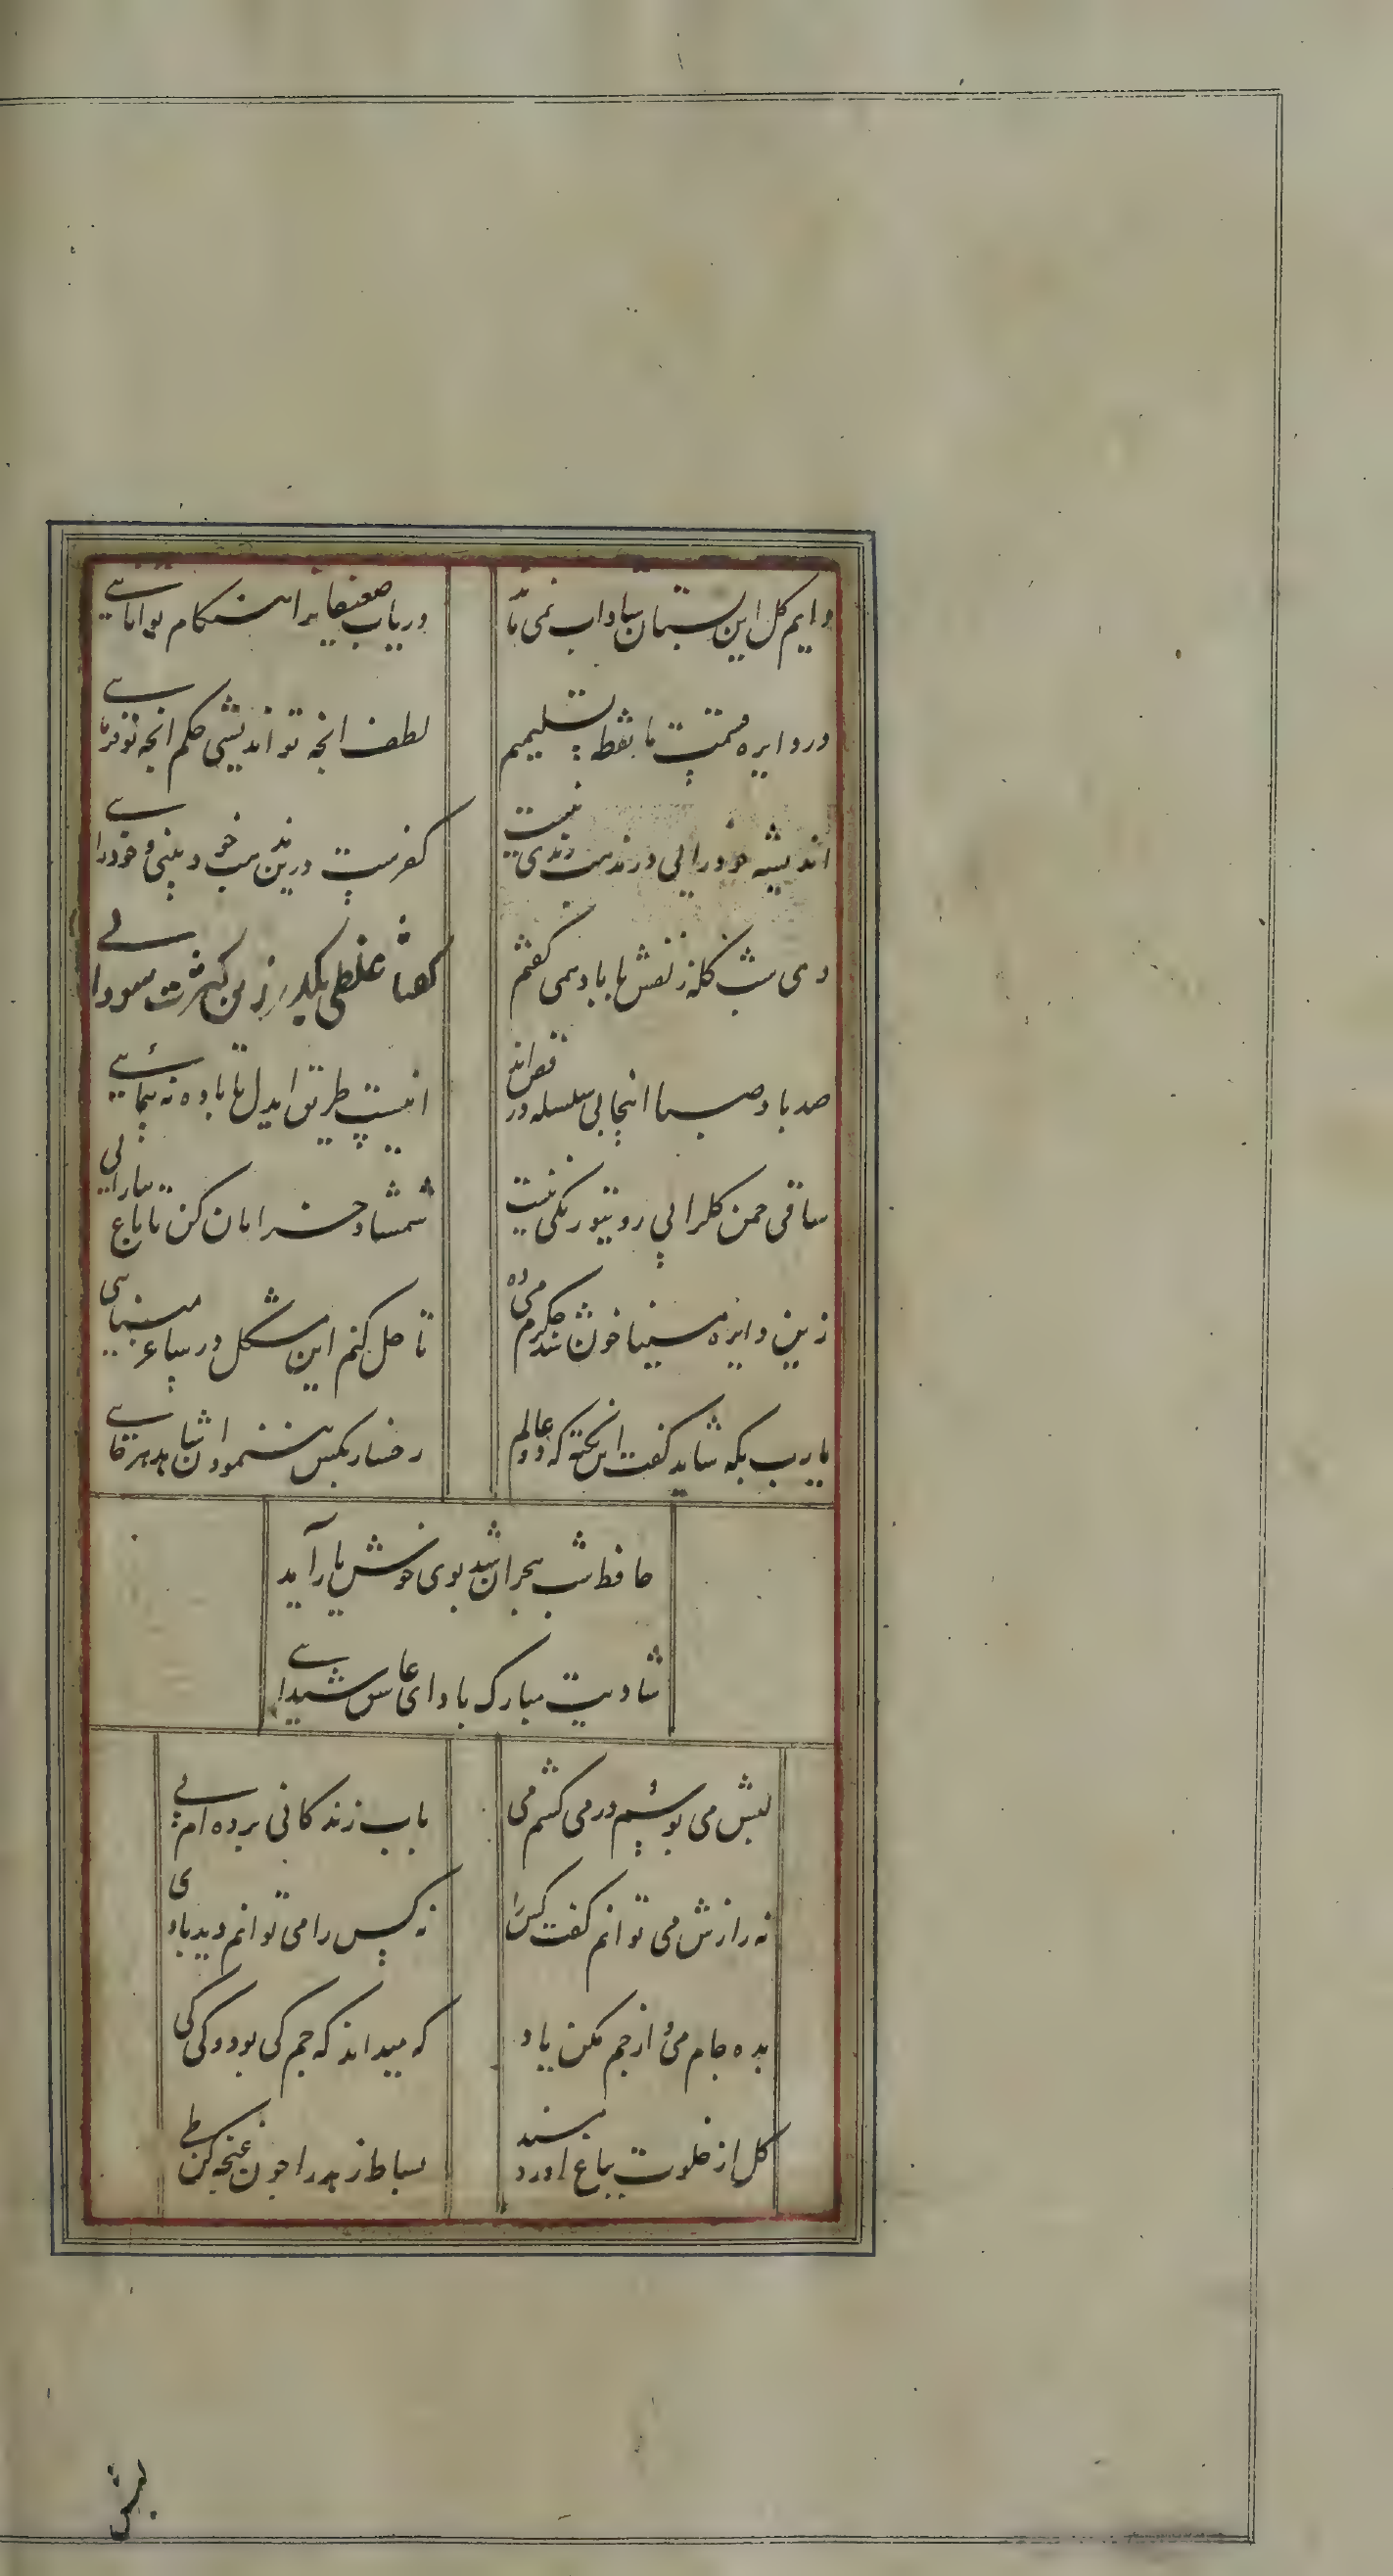 دایم گل این بستان شاداب نمی ماند
دریاب ضعیفانرا هنگام توانایی
در دایره قسمت ما نقطه تسلیمیم
لطف انچه تو اندیشی حکم انچه تو فرمایی
اندیشه خودرایی در مذهب رندی نیست
کفرست درین مذهب خودبینی و خودرایی
دی شب گله زلفش با باد همی گفتم
گفتا غلطی بگذر زین کثرت سودایی
صد باد صبا انجا بی سلسله در رقص اند
اینست طریق ایدل تا باده نه پیمائی
ساقی چمن گل را بی روی تو رنگی نیست
شمشاد خرامان کن تا باغ بیارایی
زین دایره مینا خونین جگرم می ده
تا حل کنم این مشکل در ساغر مینایی
یارب بکه شاید گفت این نکته که در عالم
رخساره بکس ننمود ان شاهد هرجایی
حافظ شب هجران شد بوی خوش یار آمد
شادیت مبارک باد ای عاشق شیدایی
لبش می بوسم و در می کشم می
باب زندگانی برده ام پی
نه رازش می توانم گفت با کس
نه کس را می توانم دید با وی
بده جام می و از جم مکن یاد
که میداند که جم کی بود و کی کی
گل از خلوت بباغ اورد مسند
بساط زهد را چون غنچه کن طی
لبش